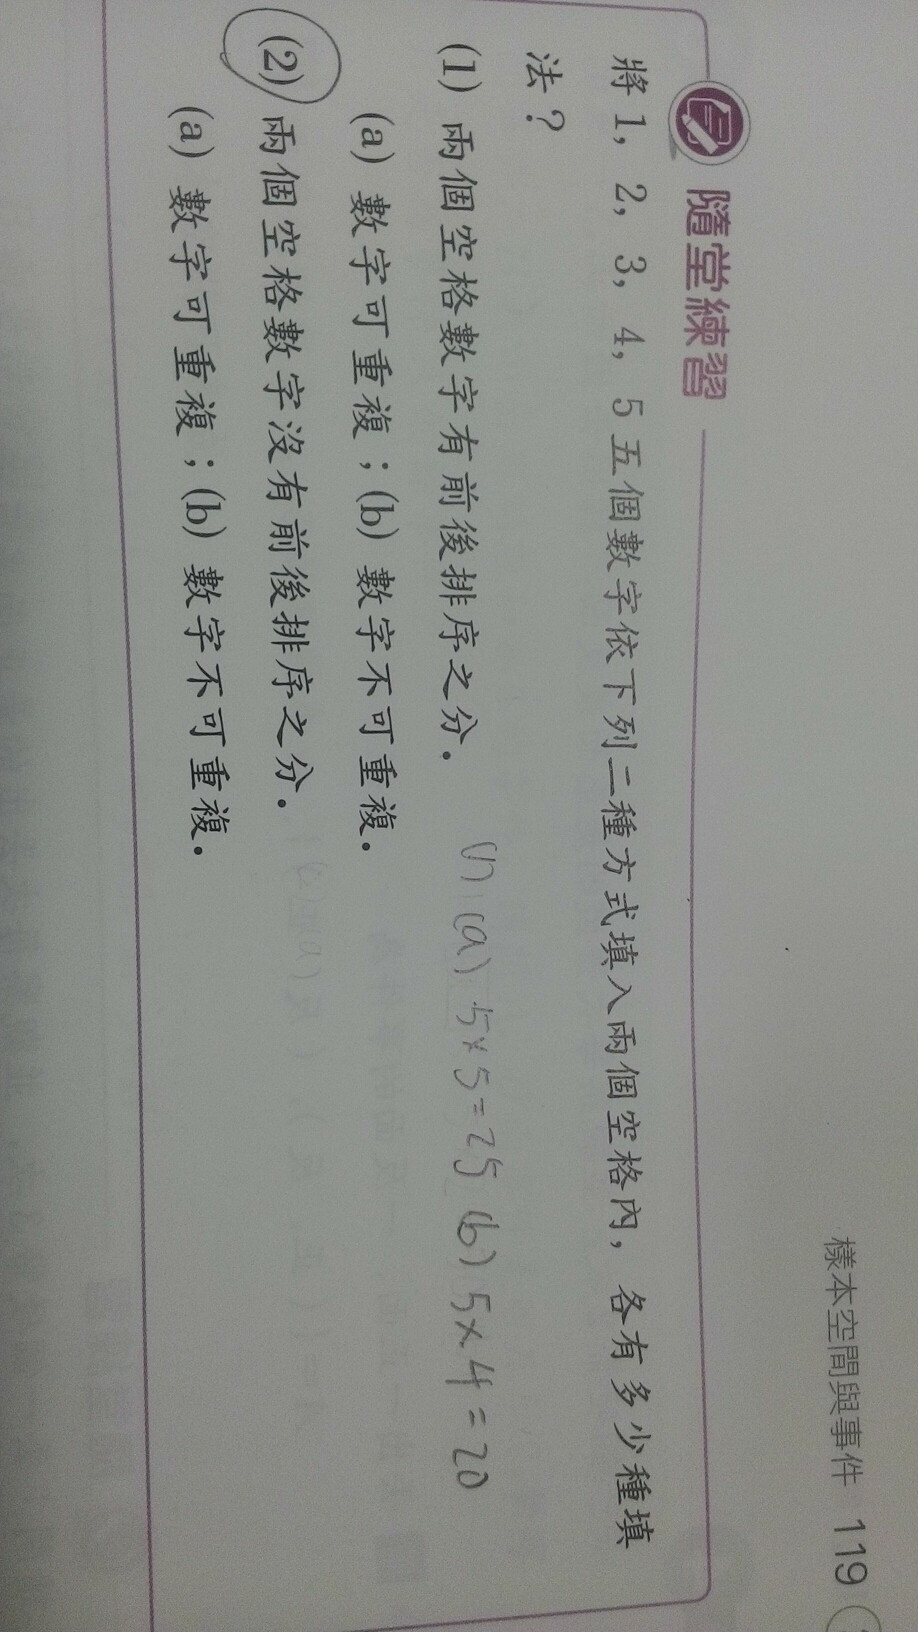 樣本空間與事件 119
隨堂練習
將 1, 2, 3, 4, 5 五個數字依下列二種方式填入兩個空格內, 各有多少種填
法?
(1) 兩個空格數字有前後排序之分.
(a) 數字可重複;(b) 數字不可重複.
(2) 兩個空格數字沒有前後排序之分.
(a) 數字可重複;(b) 數字不可重複.
(1).(a) 5×5=25 (b) 5×4=20